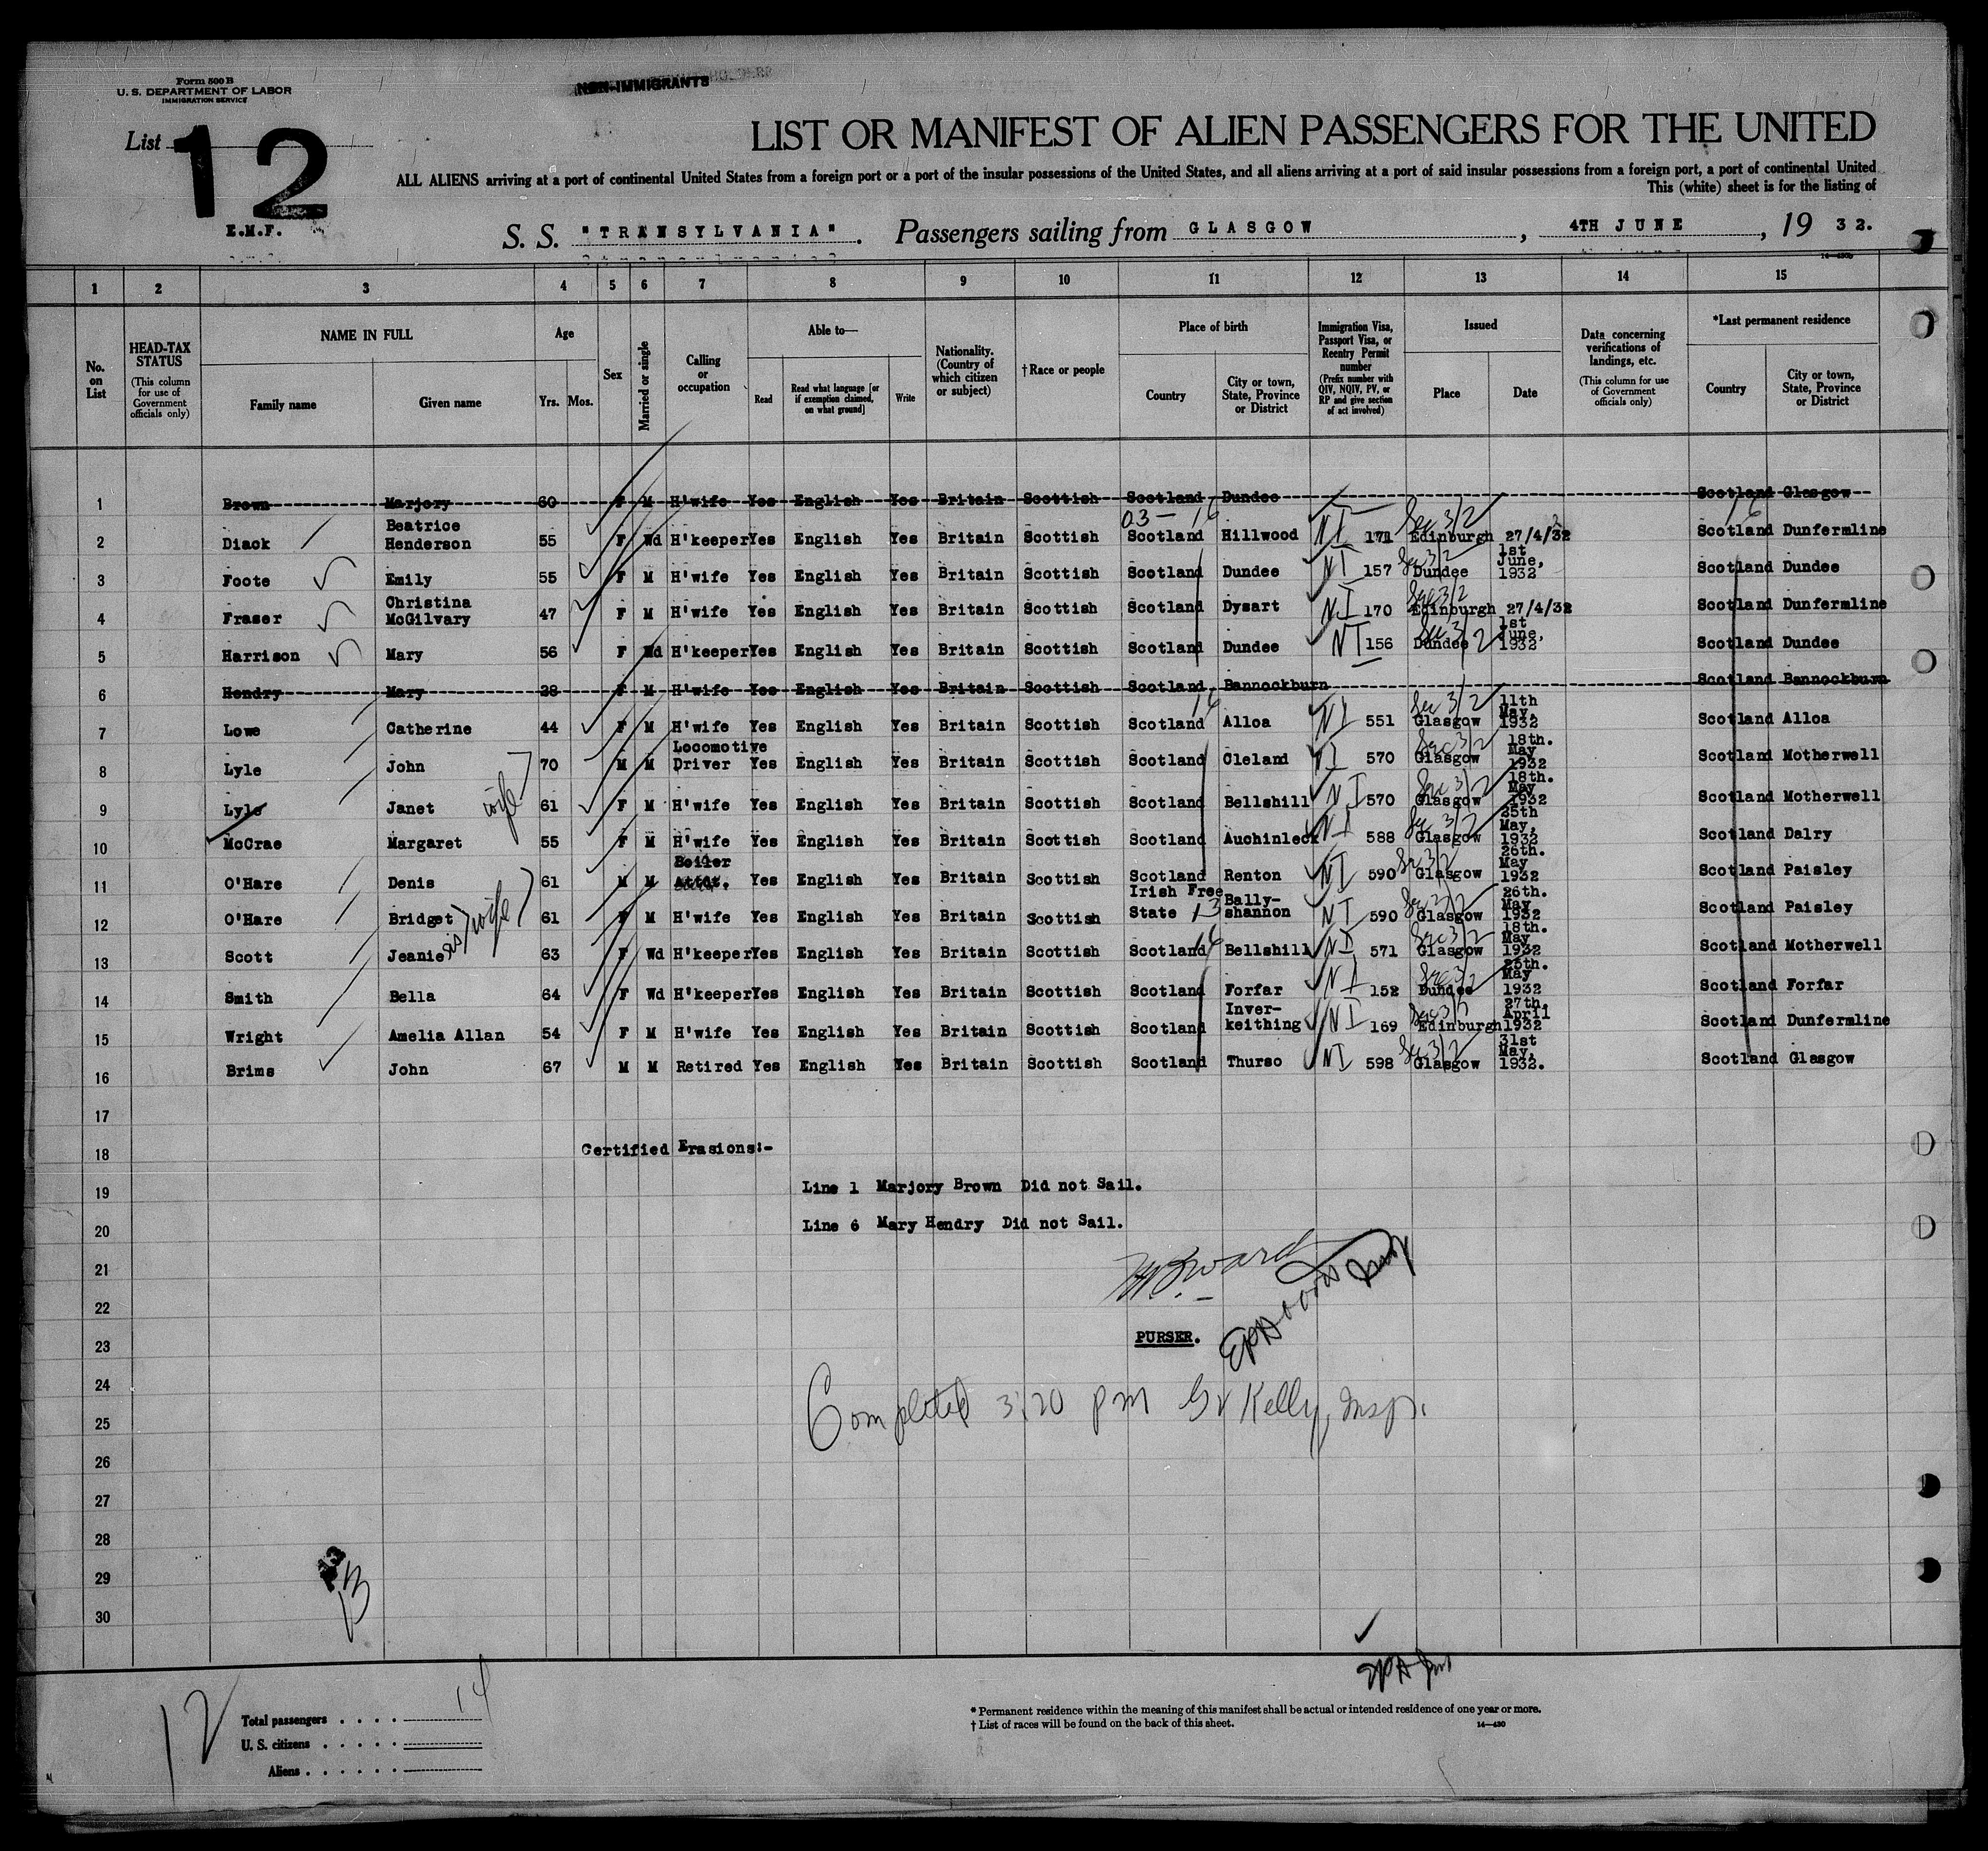 Form 500 B
U. S. DEPARTMENT OF LABOR
IMMIGRATION SERVICE
NON-IMMIGRANTS
List 12
LIST OR MANIFEST OF ALIEN PASSENGERS FOR THE UNITED
ALL ALIENS arriving at a port of continental United States from a foreign port or a port of the insular possessions of the United States, and all aliens arriving at a port of said insular possessions from a foreign port, a port of continental United
This (white) sheet is for the listing of
E.M.F.
S. S. "TRANSYLVANIA". Passengers sailing from GLASGOW, 4TH JUNE, 19 32.
1 2 3 4 5 6 7 8 9 10 11 12 13 14 15
No. on List
HEAD-TAX STATUS
(This column for use of Government officials only)
NAME IN FULL
Family name Given name
Age
Yrs. Mos.
Sex
Married or single
Calling or occupation
Able to—
Read Read what language [or if exemption claimed, on what ground] Write
Nationality. (Country of which citizen or subject)
†Race or people
Place of birth
Country City or town, State, Province or District
Immigration Visa, Passport Visa, or Reentry Permit number
(Prefix number with QIV, NQIV, PV, or RP and give section of act involved)
Issued
Place Date
Data concerning verifications of landings, etc.
(This column for use of Government officials only)
*Last permanent residence
Country City or town, State, Province or District
1 Brown Marjory 60 F M H'wife Yes English Yes Britain Scottish Scotland Dundee Scotland Glasgow
03- 16 16
2 Diack Beatrice Henderson 55 F Wd H'keeper Yes English Yes Britain Scottish Scotland Hillwood NI 171 Sec 3/2 Edinburgh 27/4/32 Scotland Dunfermline
3 Foote Emily 55 F M H'wife Yes English Yes Britain Scottish Scotland Dundee NI 157 Sec 3/2 Dundee 1st June, 1932 Scotland Dundee
4 Fraser Christina McGilvary 47 F M H'wife Yes English Yes Britain Scottish Scotland Dysart NI 170 Sec 3/2 Edinburgh 27/4/32 Scotland Dunfermline
5 Harrison Mary 56 F Wd H'keeper Yes English Yes Britain Scottish Scotland Dundee NI 156 Sec 3/2 Dundee 1st June, 1932 Scotland Dundee
6 Hendry Mary 28 F M H'wife Yes English Yes Britain Scottish Scotland Bannockburn Scotland Bannockburn
16
7 Lowe Catherine 44 F M H'wife Yes English Yes Britain Scottish Scotland Alloa NI 551 Sec 3/2 Glasgow 11th May, 1932 Scotland Alloa
8 Lyle John 70 M M Locomotive Driver Yes English Yes Britain Scottish Scotland Cleland NI 570 Sec 3/2 Glasgow 18th. May 1932 Scotland Motherwell
9 Lyle Janet wife 61 F M H'wife Yes English Yes Britain Scottish Scotland Bellshill NI 570 Sec 3/2 Glasgow 18th. May 1932 Scotland Motherwell
10 McCrae Margaret 55 F M H'wife Yes English Yes Britain Scottish Scotland Auchinleck NI 588 Sec 3/2 Glasgow 25th May, 1932 Scotland Dalry
11 O'Hare Denis 61 M M Boiler Attdt. Yes English Yes Britain Scottish Scotland Renton NI 590 Sec 3/2 Glasgow 26th. May 1932 Scotland Paisley
12 O'Hare Bridget wife 61 F M H'wife Yes English Yes Britain Scottish Irish Free State 13 Bally-shannon NI 590 Sec 3/2 Glasgow 26th. May 1932 Scotland Paisley
13 Scott Jeanie sis 63 F Wd H'keeper Yes English Yes Britain Scottish Scotland 16 Bellshill NI 571 Sec 3/2 Glasgow 18th. May 1932 Scotland Motherwell
14 Smith Bella 64 F Wd H'keeper Yes English Yes Britain Scottish Scotland Forfar NI 152 Sec 3/2 Dundee 25th. May 1932 Scotland Forfar
15 Wright Amelia Allan 54 F M H'wife Yes English Yes Britain Scottish Scotland Inver-keithing NI 169 Sec 3/2 Edinburgh 27th. April 1932 Scotland Dunfermline
16 Brims John 67 M M Retired Yes English Yes Britain Scottish Scotland Thurso NI 598 Sec 3/2 Glasgow 31st May, 1932. Scotland Glasgow
17
18 Certified Erasions:-
19 Line 1 Marjory Brown Did not Sail.
20 Line 6 Mary Hendry Did not Sail.
21
22
23 PURSER.
24
25 Completed 3:20 pm GV Kelly, Insp.
26
27
28
29
30
12
Total passengers . . . . 14
U. S. citizens . . . . .
Aliens . . . . . .
* Permanent residence within the meaning of this manifest shall be actual or intended residence of one year or more.
† List of races will be found on the back of this sheet. 14—430